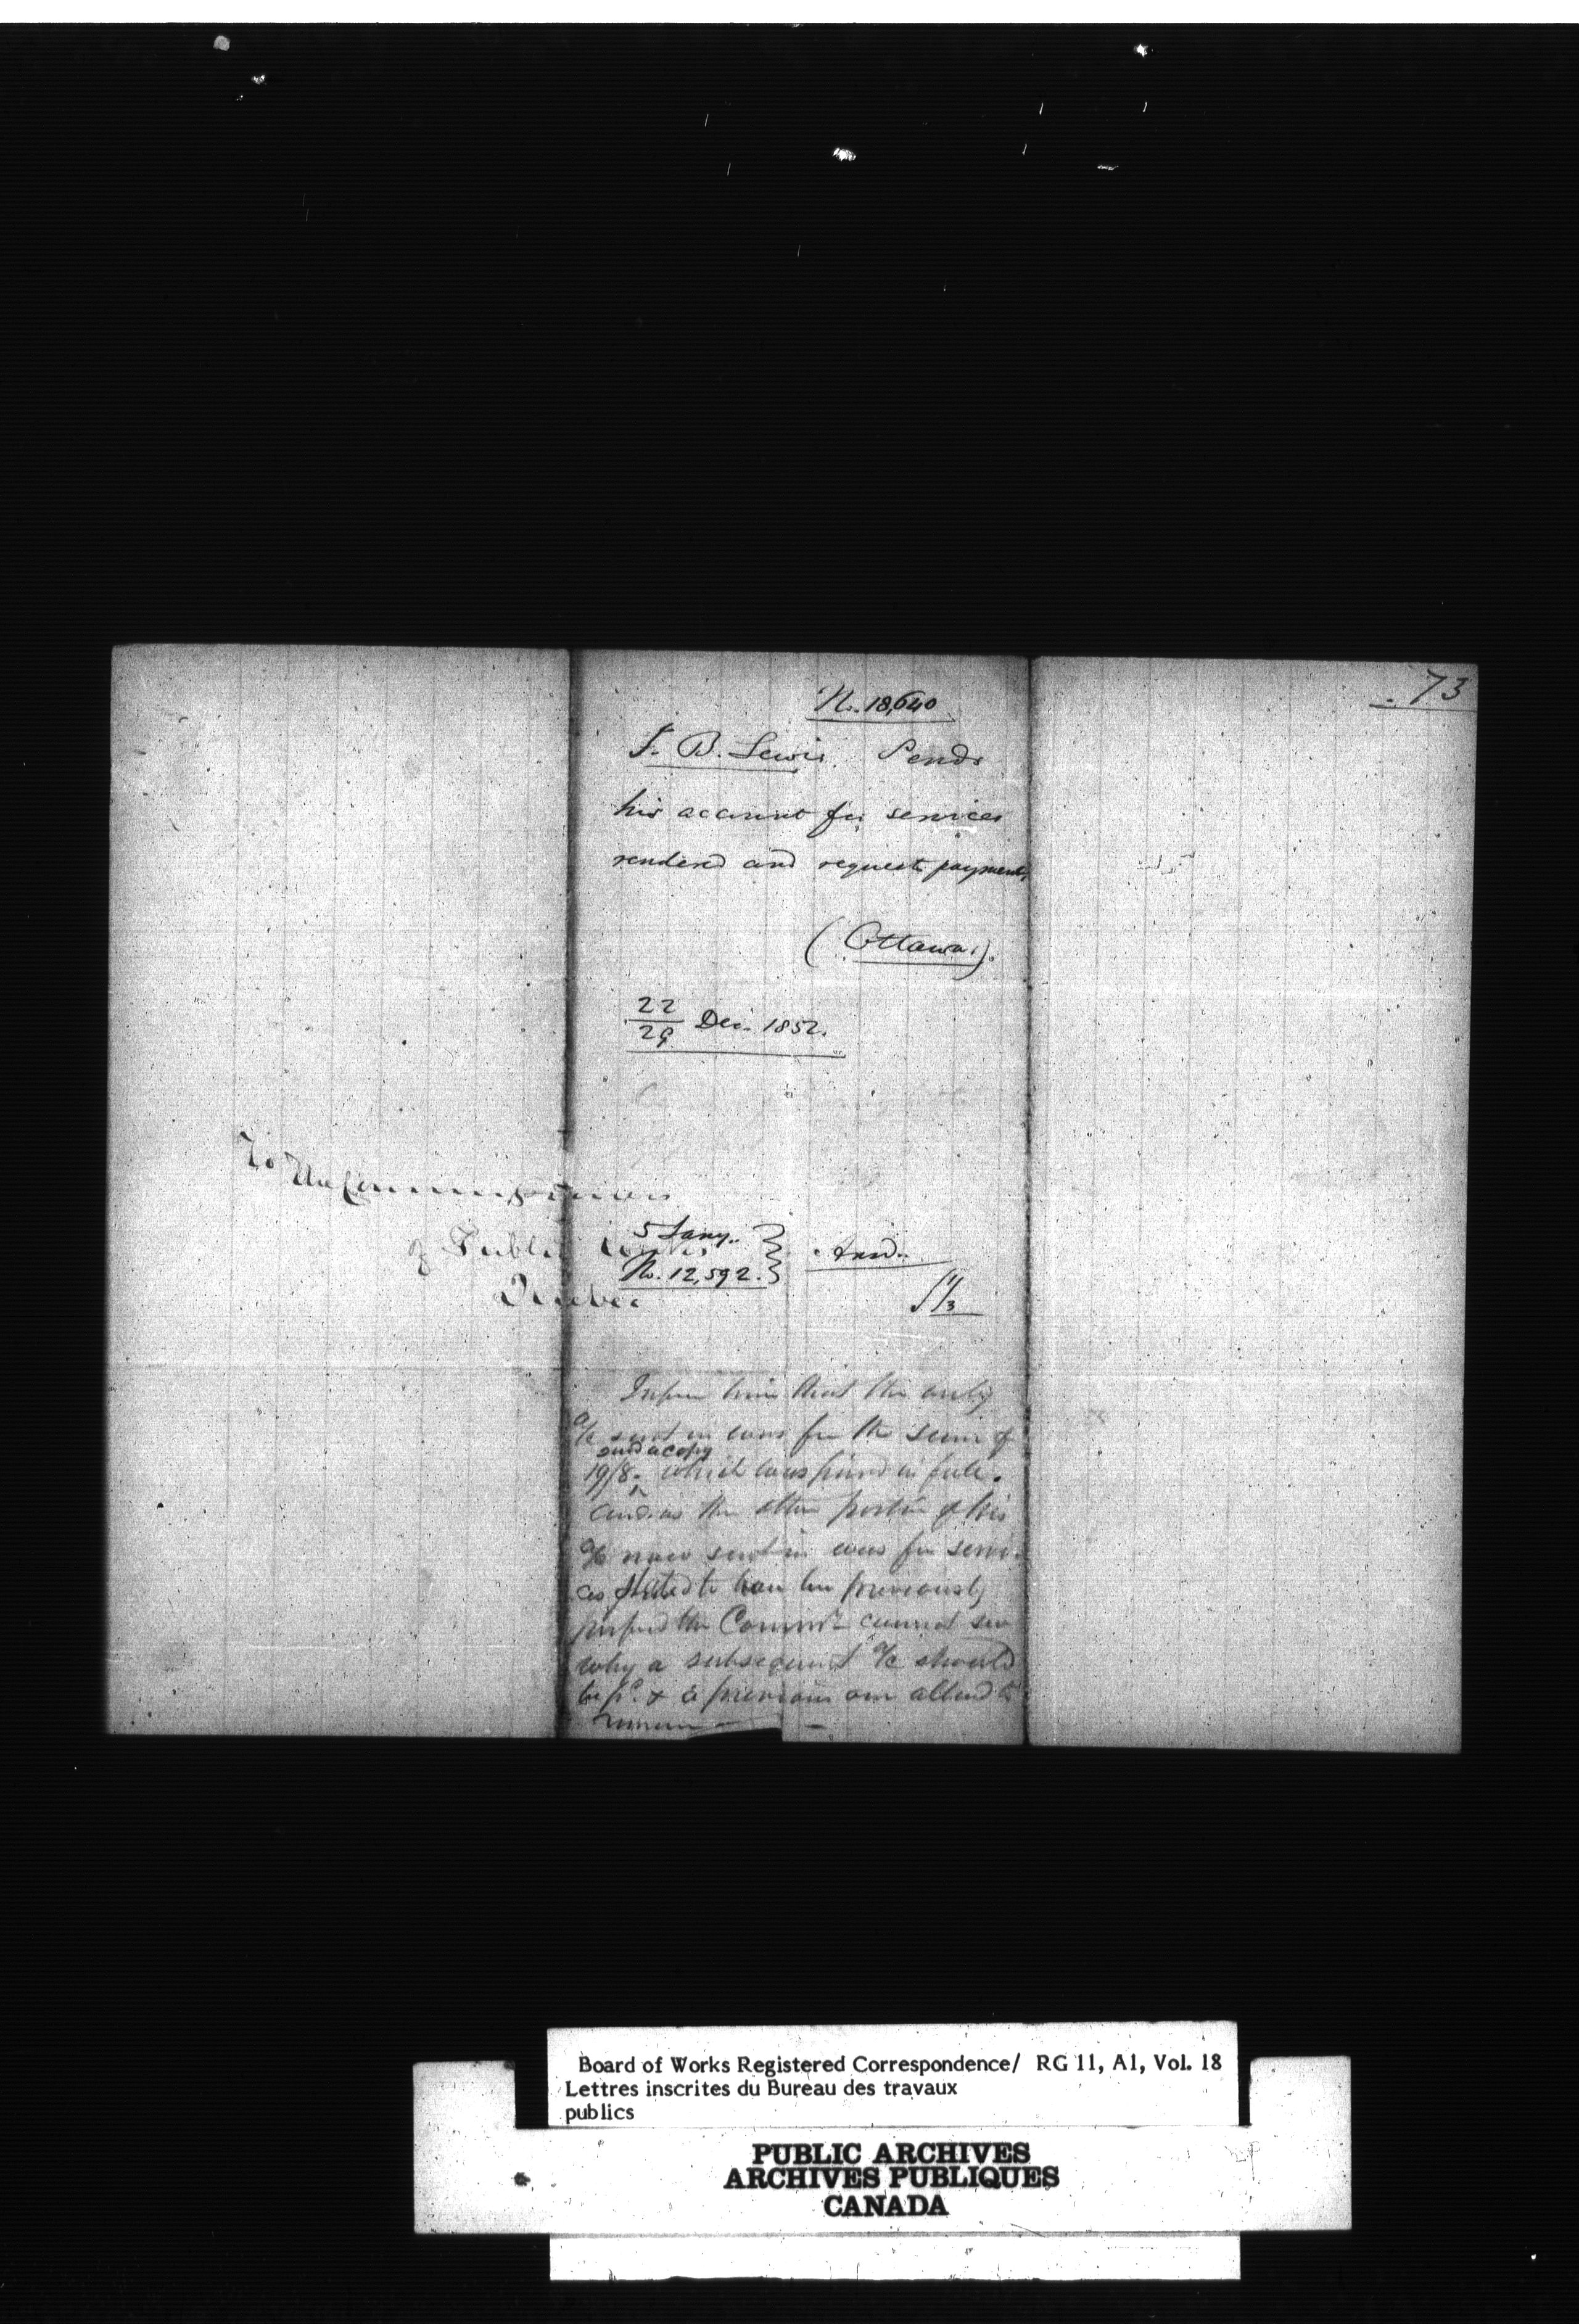 73
No. 18,640
J. B. Lewis. Sends
his account for services
rendered and requests payment.
(Ottawa.).
22
29 Dec. 1852.
To The Commissioners
of Public Works
Quebec
5 Jany..
No. 12,592.
Inform him that the only
a/c sent in was for the sum of
send a copy
19/8. which was paid in full.
and as the other portion of his
a/c now sent in was for servi-
ces stated to have been previously
the Commr cannot see
why a subsequent a/c should
be pd. & a previous one allowed to
Board of Works Registered Correspondence/ RG 11, A1, Vol. 18
Lettres inscrites du Bureau des travaux
publics
PUBLIC ARCHIVES
ARCHIVES PUBLIQUES
CANADA